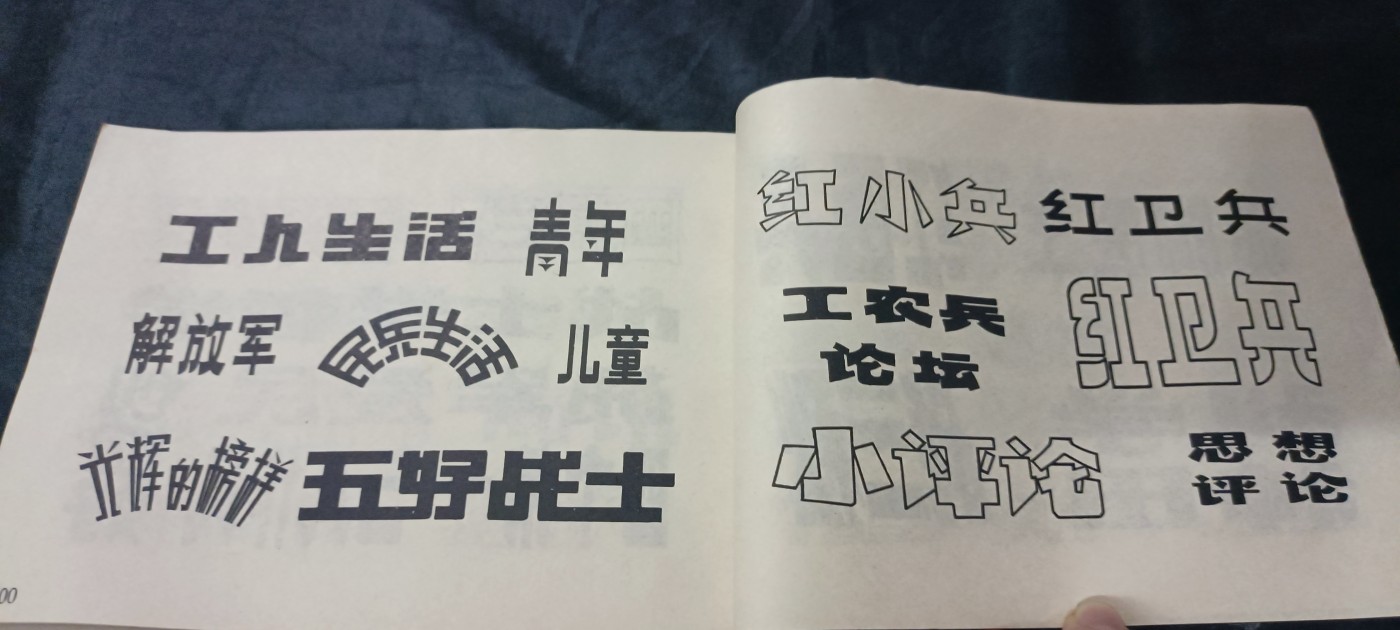 工人生活 青年
解放军 民兵生活 儿童
光辉的榜样 五好战士
00
红小兵 红卫兵
工农兵
论坛
红卫兵
小评论
思想
评论